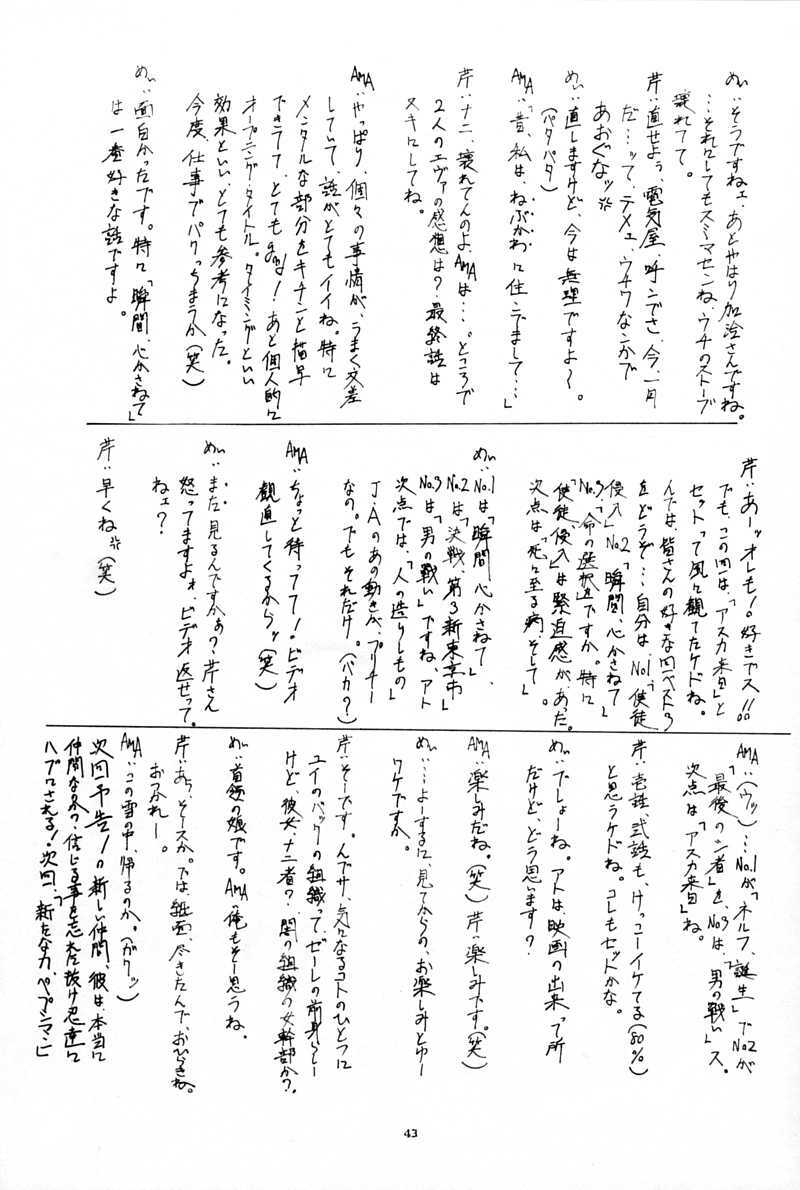 めぃ：そうですねェ、あとやはり加治さんですね。
…それにしてもスミマセンね、ウチのストーブ
壊れてて。
芹：直せよぅ、電気屋、呼ンでさ、今、一月
だ…ッて、テメェ、ウチワなンかで
あおぐなッ
めぃ：直しますけど、今は無理ですよ〜。
（パタパタ）
AMA：「昔、私は、ねぶかわに住ンでまして…」
芹：ナニ、壊れてんのよ、AMAは…。ところで
2人のエヴァの感想は？最終話は
ヌキにしてね。
AMA：やっぱり、個々の事情が、うまく交差
していて、話がとてもイイね。特に
メンタルな部分をキチンと描写
できてて、とてもgood！あと個人的に
オープニング、タイトル。タイミングといい
効果といい、とても参考になった。
今度、仕事でパクっちまうか（笑）
めぃ：面白かったです。特に「瞬間、心かさねて」
は一番好きな話ですよ。
芹：あーッオレも！好きでス!!
でも、この回は、「アスカ来日」と
セットって風に観てたケドね。
んでは、皆さんの好きな回ベスト3
をどうぞ…自分は、No.1「使徒
侵入」No.2「瞬間、心かさねて」
No.3「命の選択を」ですか。特に
「使徒侵入」は緊迫感が、あった。
次点は「死に至る病、そして」
めぃ：No.1は「瞬間心かさねて」、
No.2は「決戦、第3新東京市」
No.3は「男の戦い」ですね、アト
次点では、「人の造りしもの」
J・Aのあの動きが、プリチー
なの。でもそれだけ。（バカ？）
AMA：ちょっと待ってて！ビデオ
観直してくるからッ（笑）
めぃ：まだ見るんですかぁ？芹さん
怒ってますよォ、ビデオ返せって。
ねェ？
芹：早くね（笑）
AMA：（ウッ）…No.1が「ネルフ、誕生」でNo.2が
「最後のシ者」を、No.3は、「男の戦い」ス。
次点は「アスカ来日」ね。
芹：壱話、弐話も、けっこーイケてる（80%）
と思うケドね。コレもセットかな。
めぃ：でしょーね。アトは、映画の出来って所
だけど、どう思います？
AMA：楽しみだね。（笑）芹：楽しみです。（笑）
めぃ：…よーするに、見てからの、お楽しみとゆー
ワケですか。
芹：そーです。んでサ、気になるコトのひとつに
ユイのバックの組織って、ゼーレの前身らしー
けど、彼女、ナニ者？闇の組織の女幹部か？
めぃ：首領の娘です。AMA：俺もそー思うね。
芹：あっ、そースか。では、紙面、尽きたんで、おひらきね。
おつかれー。
AMA：この雪の中、帰るのか。（ガクッ）
次回予告！の新しい仲間、彼は、本当に
仲間なのか、信じる事を忘れた抜け忍達に
ハブにされる！次回、「新たな力、ペプシマン」
43